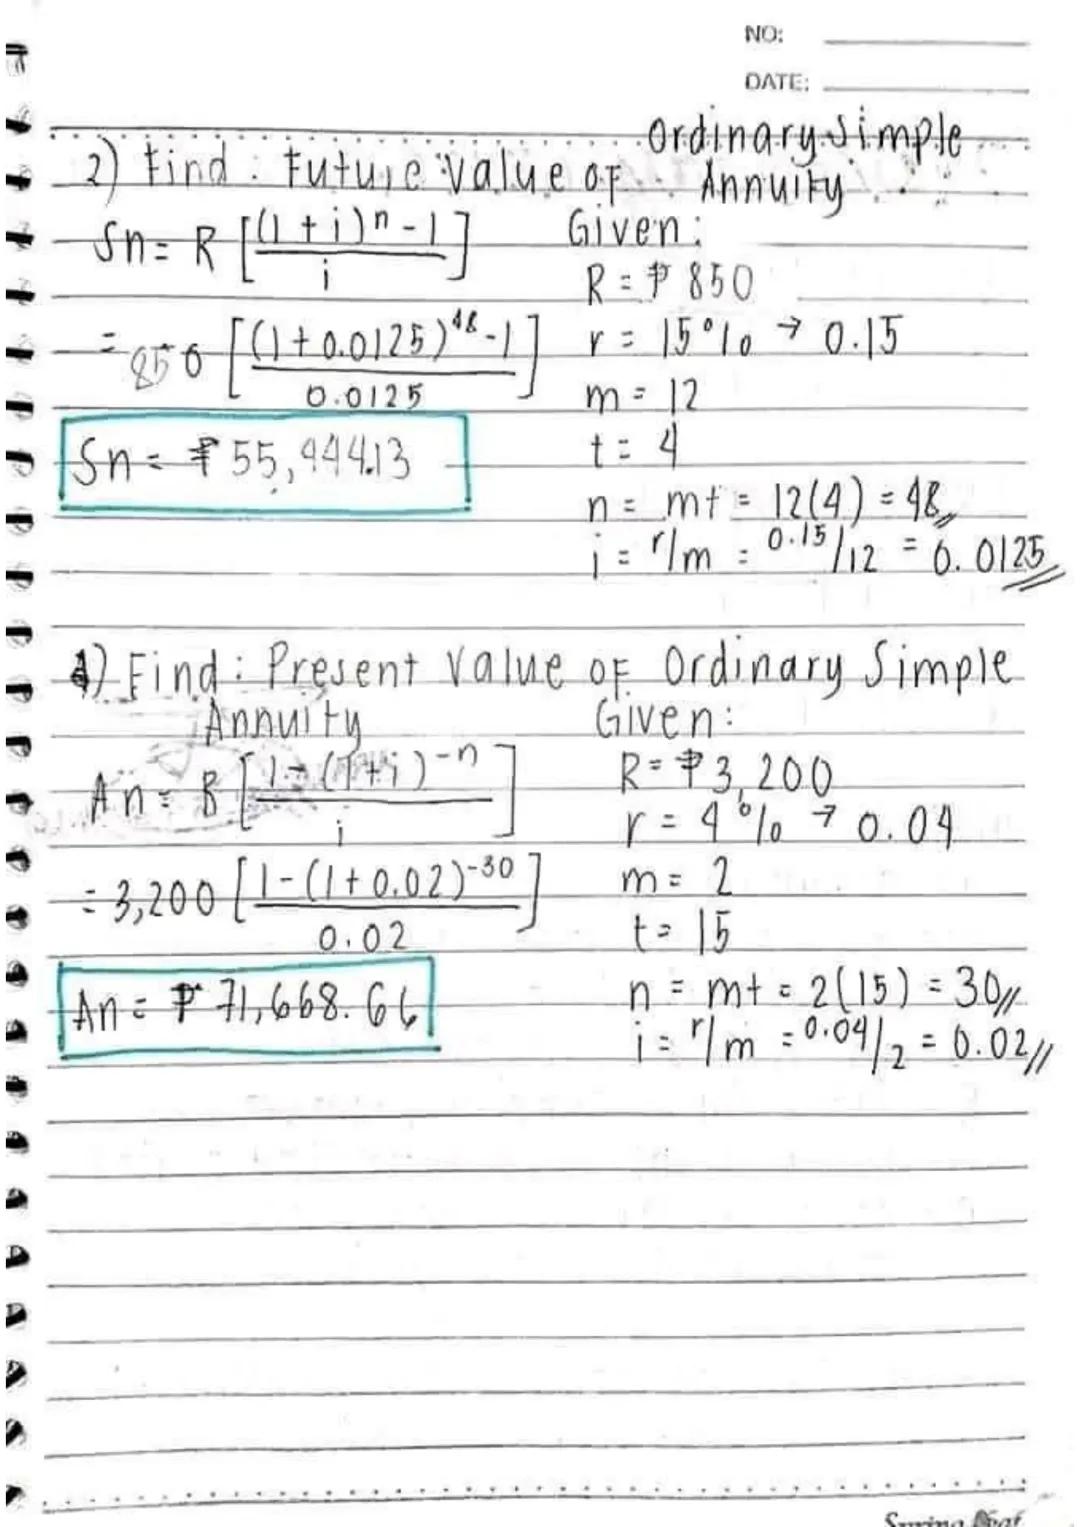 NO:
DATE:
2) Find: Future Value of Ordinary Simple Annuity
Sn = R [(1 + i)^n - 1 / i]
Given:
R = ₱ 850
= 850 [(1 + 0.0125)^48 - 1 / 0.0125]
r = 15% → 0.15
m = 12
Sn = ₱ 55,444.13
t = 4
n = mt = 12(4) = 48
i = r/m = 0.15/12 = 0.0125
4) Find: Present Value of Ordinary Simple
Annuity
Given:
An = R [1 - (1 + i)^-n / i]
R = ₱3,200
r = 4% → 0.04
= 3,200 [1 - (1 + 0.02)^-30 / 0.02]
m = 2
t = 15
An = ₱ 71,668.66
n = mt = 2(15) = 30
i = r/m = 0.04/2 = 0.02